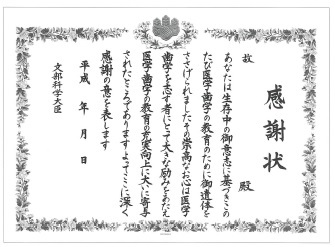 感謝状
故 殿
あなたは生存中の御意志に基づきこの
たび医学歯学の教育のために御遺体を
ささげられましたその崇高なお心は医学
歯学を志す者にとって大きな励みをあたえ
医学歯学の教育の充実向上に大いに寄与
されたところでありますよってここに深く
感謝の意を表します
平成 年 月 日
文部科学大臣